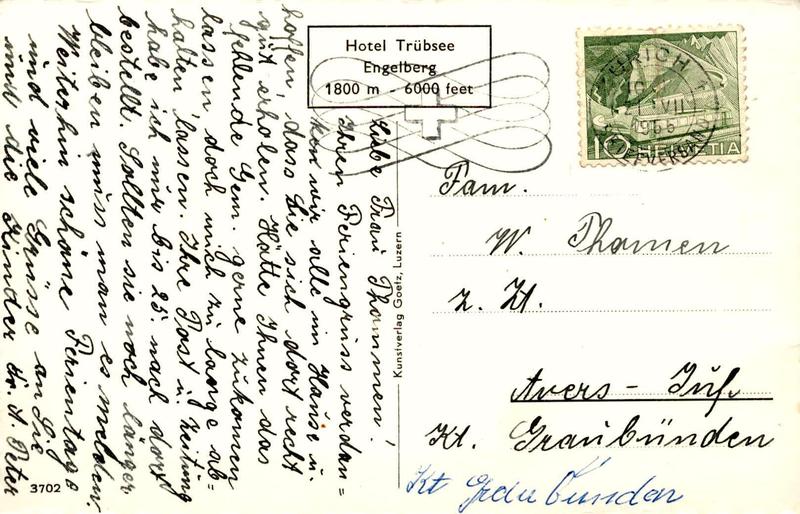 Hotel Trübsee
Engelberg
1800 m - 6000 feet
ZÜRICH
VII
1955
BRIEFVERSAND
10 HELVETIA
Liebe Frau Thommen!
Ihren Feriengruss verdan=
ken wir alle im Hause u.
hoffen, dass Sie sich dort recht
gut erholen. Hätte Ihnen das
fehlende Gem. gerne zukomen
lassen, doch mich zu lange ab-
halten lassen. Ihre Post u. Zeitung
habe ich nur bis 25. nach dort
bestellt. Sollten sie noch länger
bleiben muss man es melden.
Weiterhin schöne Ferientage
und viele Grüsse an Sie
und die Kinder Fr. A. Peter
Kunstverlag Goetz, Luzern
3702
Fam.
W. Thomen
z. Zt.
Avers - Juf.
Kt. Graubünden
Kt Graubünden